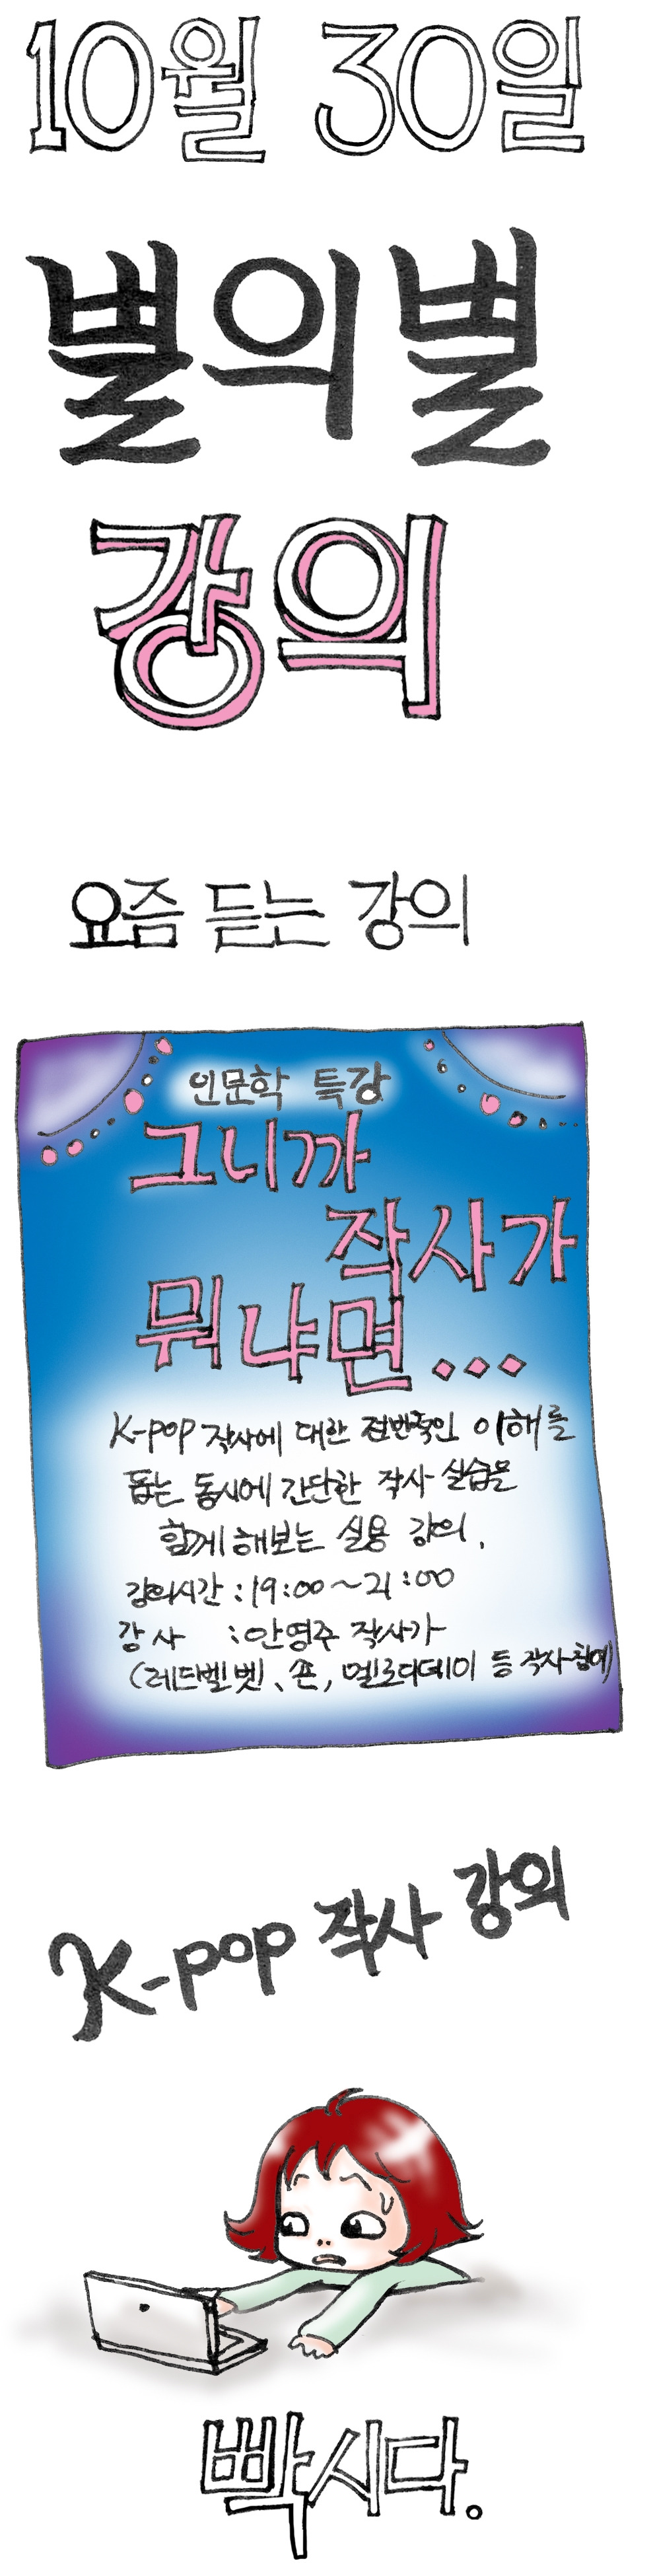 10월 30일
별의별
강의
요즘 듣는 강의
인문학 특강
그니까
작사가
뭐냐면...
K-pop 작사에 대한 전반적인 이해를
돕는 동시에 간단한 작사 실습을
함께 해보는 실용 강의.
강의시간 : 19:00~21:00
강 사 : 안영주 작사가
(레드벨벳, 숀, 멜로디데이 등 작사참여)
K-pop 작사 강의
빡시다.